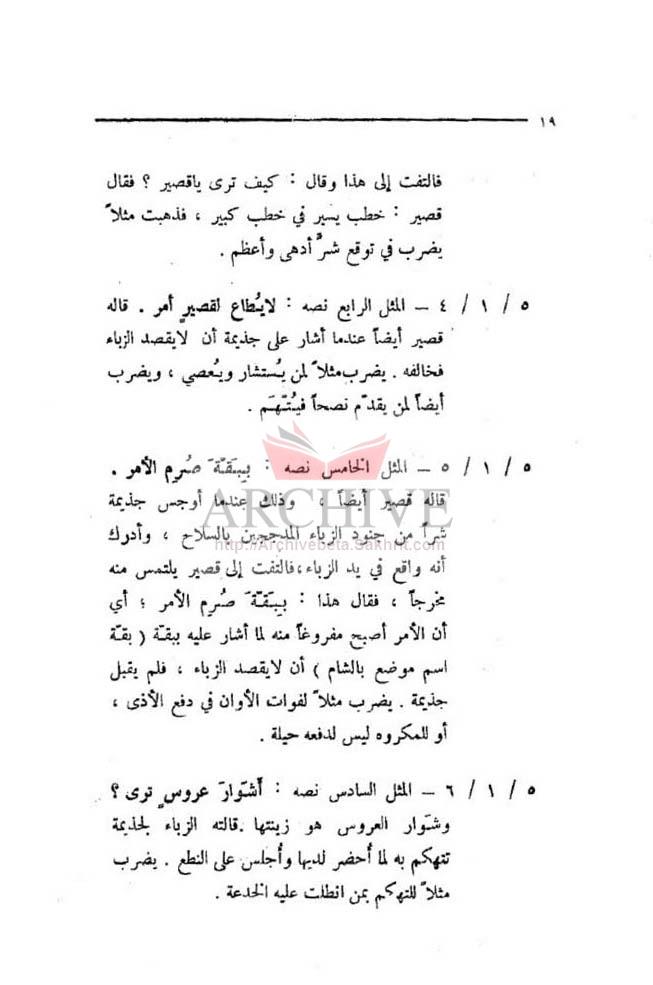 ١٩
فالتفت إلى هذا وقال : كيف ترى ياقصير ؟ فقال
قصير : خطب يسير في خطب كبير ، فذهبت مثلاً
يضرب في توقع شرٍّ أدهى وأعظم .
٥ / ١ / ٤ – المثل الرابع نصه : لايُطاع لقصيرٍ أمر . قاله
قصير أيضاً عندما أشار على جذيمة أن لايقصد الزباء
فخالفه . يضرب مثلاً لمن يُستشار ويُعصي ، ويضرب
أيضاً لمن يقدّم نصحاً فيُتّهَم .
٥ / ١ / ٥ – المثل الخامس نصه : بِبَقّةَ صُرِم الأمر .
قاله قصير أيضاً ، وذلك عندما أوجس جذيمة
شراً من جنود الزباء المدججين بالسلاح ، وأدرك
أنه واقع في يد الزباء،فالتفت إلى قصير يلتمس منه
مخرجاً ، فقال هذا : بِبَقّةَ صُرِم الأمر ؛ أي
أن الأمر أصبح مفروغاً منه لما أشار عليه ببقة ( بقة
اسم موضع بالشام ) أن لايقصد الزباء ، فلم يقبل
جذيمة . يضرب مثلاً لفوات الأوان في دفع الأذى ،
أو للمكروه ليس لدفعه حيلة .
٥ / ١ / ٦ – المثل السادس نصه : أَشَوارَ عروسٍ ترى ؟
وشَوار العروس هو زينتها .قالته الزباء لجذيمة
تتهكم به لما أُحضر لديها وأُجلس على النطع . يضرب
مثلاً للتهكم بمن انطلت عليه الخدعة .
ARCHIVE
http://Archivebeta.Sakhrit.com